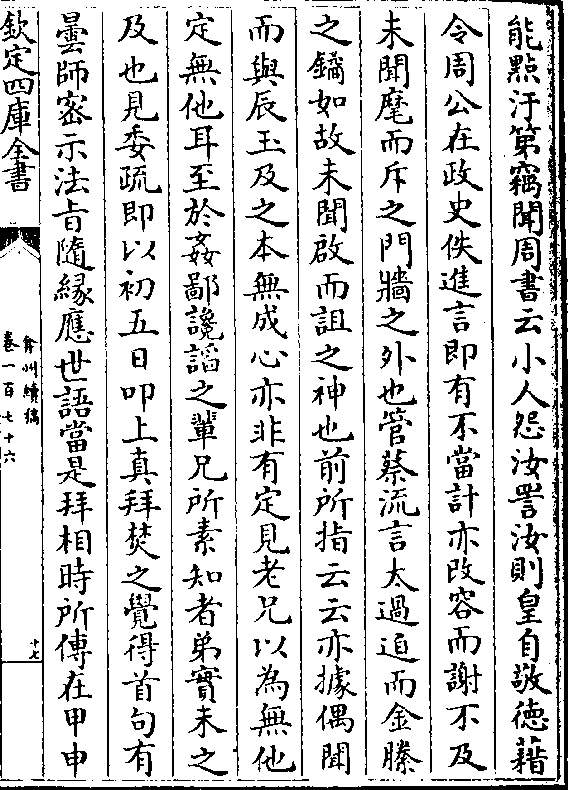 能點汙第竊聞周書云小人怨汝詈汝則皇自敬德藉
令周公在政史佚進言即有不當計亦改容而謝不及
未聞麾而斥之門牆之外也管蔡流言太過迫而金縢
之鑰如故未聞啟而詛之神也前所指云云亦據偶聞
而與辰玉及之本無成心亦非有定見老兄以為無他
定無他耳至於姦鄙讒謟之輩兄所素知者弟實未之
及也見委疏即以初五日叩上真拜焚之覺得首句有
曇師密示法旨隨緣應世語當是拜相時所傳在甲申
欽定四庫全書
弇州續稿
卷一百七十六
十七